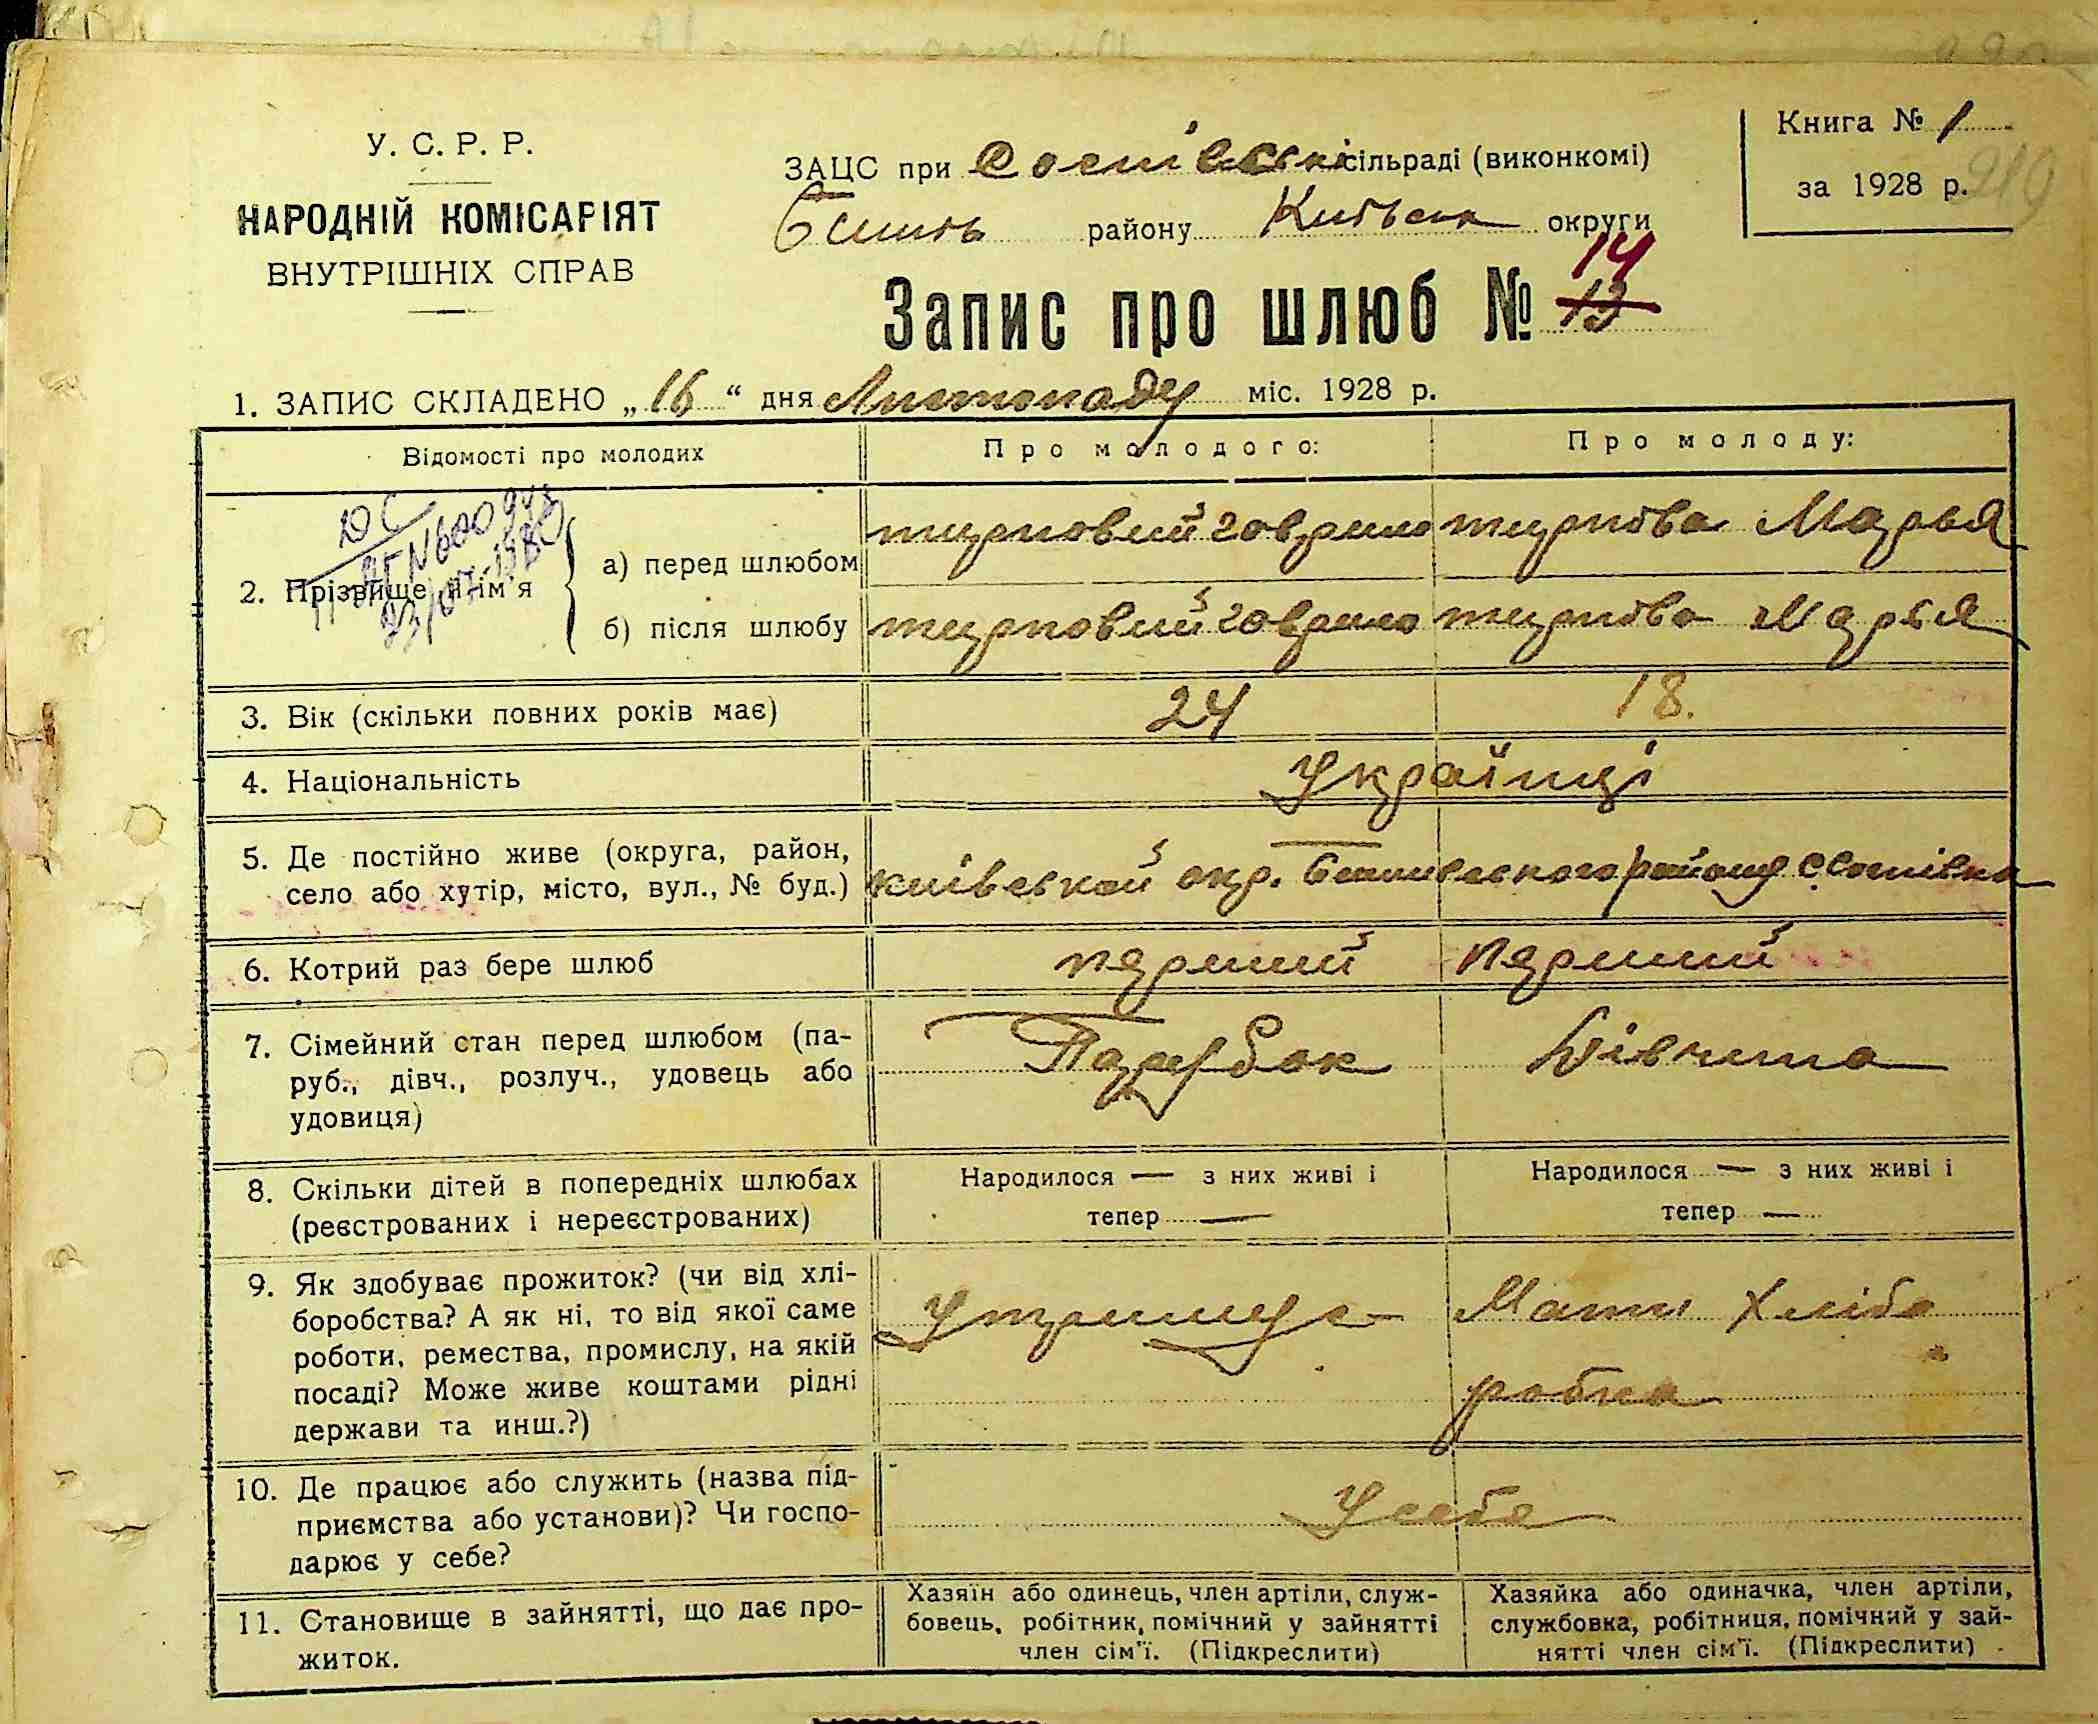 У. С. Р. Р.
НАРОДНІЙ КОМІСАРІЯТ
ВНУТРІШНІХ СПРАВ
ЗАЦС при сільраді (виконкомі)
району Київськ округи
Книга № 1
за 1928 р.
219
Запис про шлюб № 14
13
1. ЗАПИС СКЛАДЕНО „16“ дня Листопаду міс. 1928 р.
Відомості про молодих
Про молодого:
Про молоду:
2. Прізвище й ім'я
а) перед шлюбом
турповий говрило
турпова Марья
б) після шлюбу
турповий говрило
турпова Марья
3. Вік (скільки повних років має)
24
18.
4. Національність
Українці
5. Де постійно живе (округа, район,
село або хутір, місто, вул., № буд.)
київськой окр. району
6. Котрий раз бере шлюб
перший
перший
7. Сімейний стан перед шлюбом (па-
руб., дівч., розлуч., удовець або
удовиця)
Парубок
Дівчина
8. Скільки дітей в попередніх шлюбах
(реєстрованих і нереєстрованих)
Народилося — з них живі і
тепер —
Народилося — з них живі і
тепер —
9. Як здобуває прожиток? (чи від хлі-
боробства? А як ні, то від якої саме
роботи, ремества, промислу, на якій
посаді? Може живе коштами рідні
держави та инш.?)
Утримує
Мати Хлібо
робка
10. Де працює або служить (назва під-
приємства або установи)? Чи госпо-
дарює у себе?
У себе
11. Становище в зайнятті, що дає про-
житок.
Хазяїн або одинець, член артіли, служ-
бовець, робітник, помічний у зайнятті
член сім'ї. (Підкреслити)
Хазяйка або одиначка, член артіли,
службовка, робітниця, помічний у зай-
нятті член сім'ї. (Підкреслити)